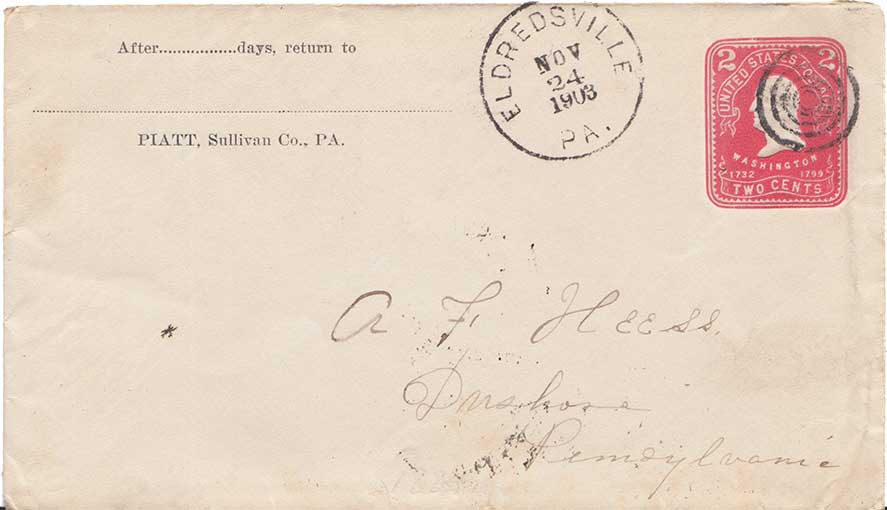 After.................days, return to
PIATT, Sullivan Co., PA.
ELDREDSVILLE
NOV
24
1903
PA.
2 2
UNITED STATES POSTAGE
WASHINGTON
1732 1799
TWO CENTS
A F HEESS.
Dushore
Pennsylvania